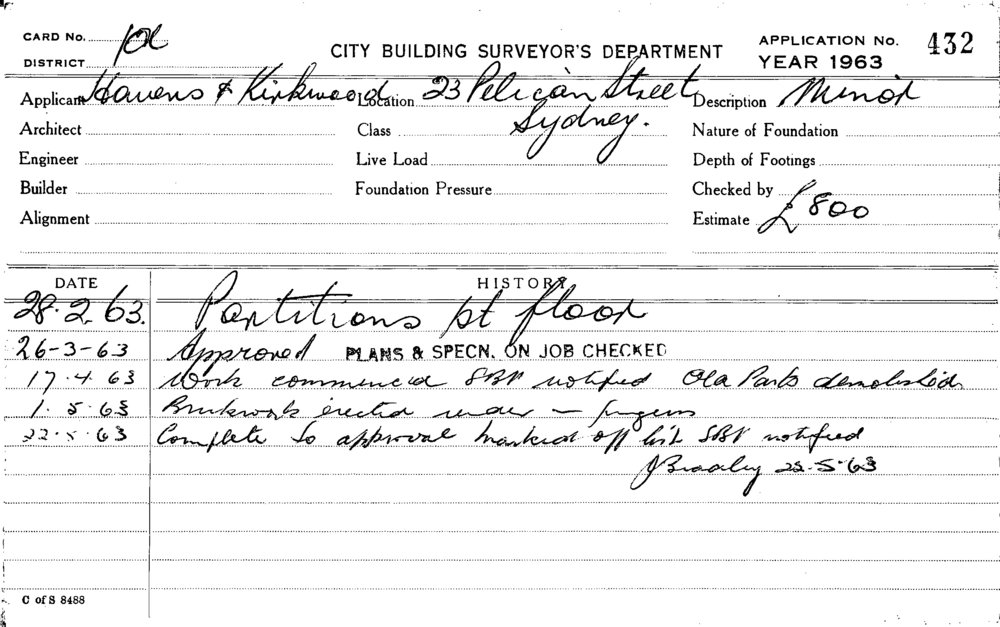 CARD No. 
CITY BUILDING SURVEYOR'S DEPARTMENT
APPLICATION No. 432
DISTRICT
YEAR 1963
Applicant Havens & Kirkwood Location 23 Pelican Street Description Minor
Sydney.
Architect Class Nature of Foundation
Engineer Live Load Depth of Footings
Builder Foundation Pressure Checked by
Alignment Estimate £800
DATE HISTORY
28.2.63. Partitions 1st floor
26-3-63 Approved PLANS & SPECN. ON JOB CHECKED
17.4.63 Work commenced notified Old Parts demolished
1.5.63 Brickwork erected under
22.5.63 Complete to approval marked off list notified
22-5-63
C of S 8488